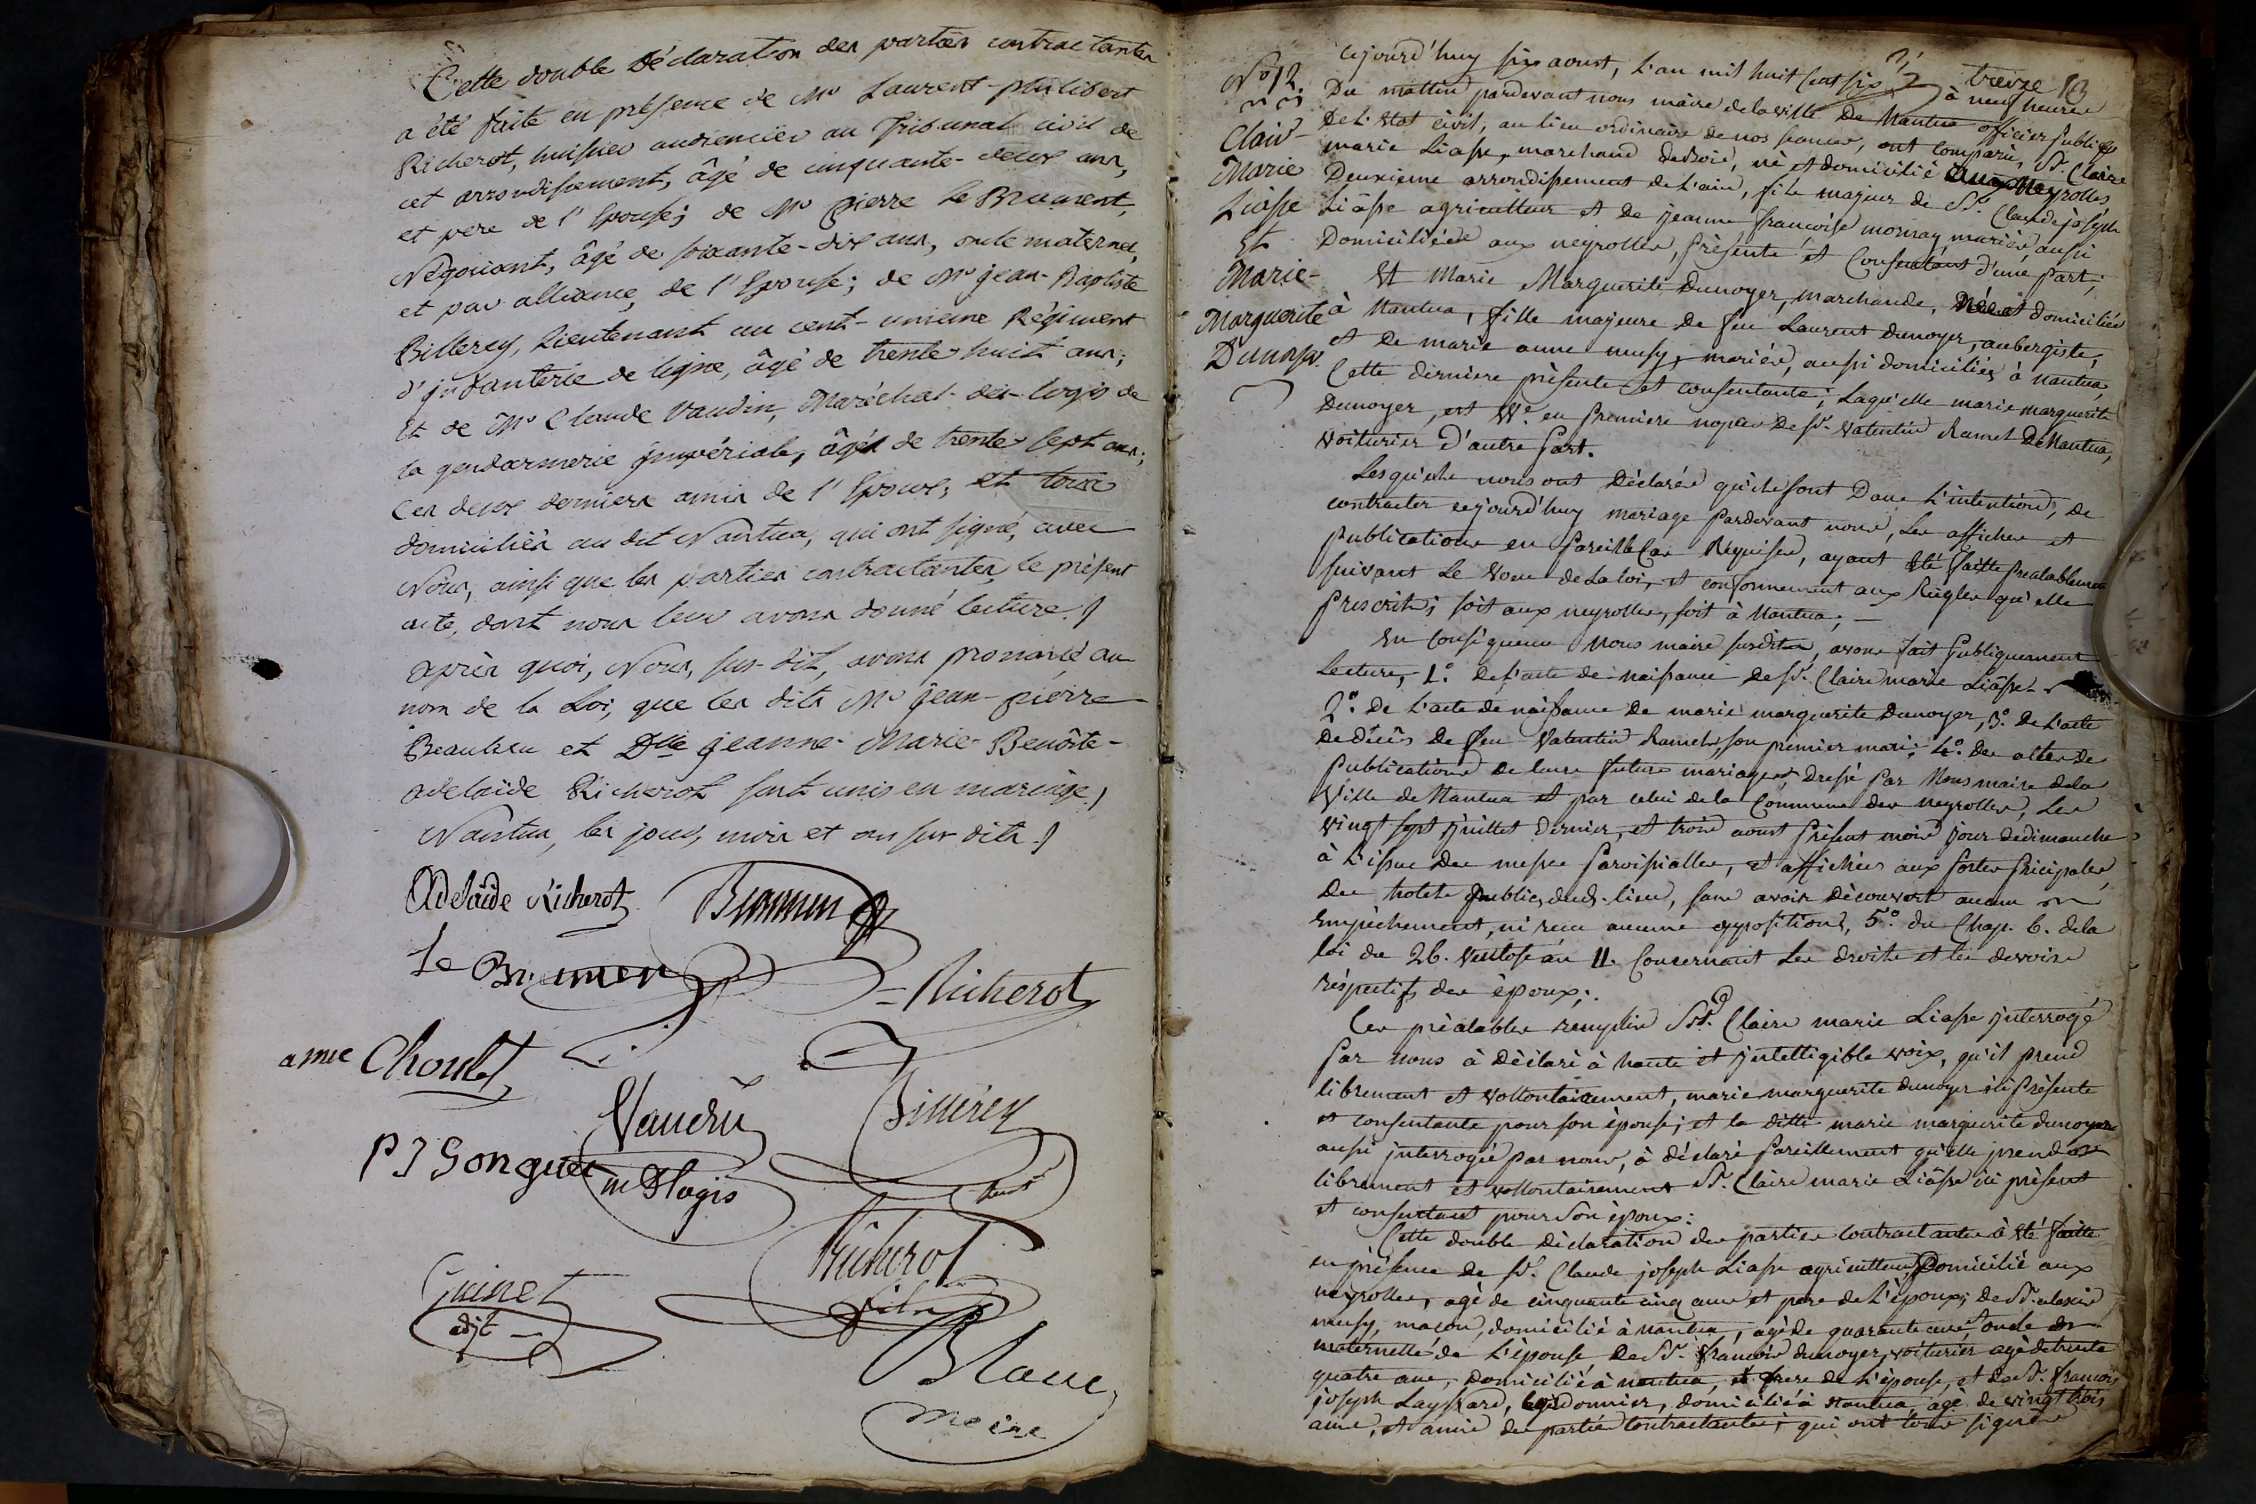 Cette double Déclaration des parties contractantes
a été faite en présence de Mr Laurent-philibert
Richerot, huissier audiencier au Tribunal civil de
cet arrondissement, âgé de cinquante-deux ans,
et pere de l'Epouse; de Mr Pierre Le Brument,
Négociant, âgé de soixante-dix ans, oncle maternel,
et par alliance, de l'Epouse; de Mr jean-Baptiste
Billerey, Lieutenant au cent-unieme Régiment
d'jnfanterie de ligne, âgé de trente huit ans;
Et de Mr Claude Vaudin, Maréchal-des-logis de
la gendarmerie jmpériale, âgé de trente sept ans;
Ces deux derniers amis de l'Epoux, et tous
domiciliés au dit Nantua, qui ont signé, avec
Nous, ainsi que les parties contractantes, le présent
acte, dont nous leur avons donné lecture./
après quoi, Nous, sus-dit, avons prononcé au
nom de la Loi, que les dits Mr jean-pierre
et Dlle jeanne-Marie-Benoite-
adelaïde Richerot sont unis en mariage,
Nantua, les jour, mois et an sus dits./
Adelaïde Richerot
Le Brument
Richerot
Choulet
Vaudin
Billerey
P J Gonguet
m D logis
Richerot
fils
Guinet
adjt
Blanc
Maire
treize 13
cejourd'huy six aoust, L'an mil huit Cent six à neuf heures
No 12.
Du mattin pardevant nous maire de la ville De Nantua officier public
Clair-
De L'Etat civil, au lieu ordinaire de nos seances, ont comparu, Sr. Claire
Marie
marie Liasse, marchand , né et domicilié aux Neyrolles
Liasse
Deuxieme arrondissement de L'ain, fils majeur de Sr. Claude joseph
Et
Liasse agriculteur et de jeanne francoise mornay, mariés, aussi
Marie-
Domiciliées aux neyrolles, présents et Consentants d'une part;
Marguerite
Et Marie Marguerite Dunoyer, marchande, Née et domiciliée
Dunoyer.
à Nantua, fille majeure De feu Laurent dunoyer, aubergiste,
et De marie anne musy, mariés, aussi domiciliés à nantua,
Cette derniere présente et consentante; Laqu'elle marie marguerite
Dunoyer, est Ve. en premiere nopces De Sr. Valentin Ramel De Nantua,
voiturier D'autre part.
Lesqu'els nous ont Déclarés qu'ils sont Dans L'intention, de
contracter cejourd'huy mariage pardevant nous, Les affiches et
publications en pareil Cas Requises, ayant Eté faitte préalablement
suivant Le Voeu de La loi, et conformement aux Règles qu'elle
prescrits; soit aux neyrolles, soit à Nantua; —
En Conséquence Nous maire susdit, avons fait publiquement
Lecture, 1.° De L'acte de naissance de Sr. Claire marie Liasse
2.° De L'acte de naissance De marie marguerite dunoyer, 3.° de L'acte
De décès De feu Valentin Ramel, son premier mari; 4.° des actes de
publications de leurs futurs mariages, dressé par Nous maire dela
Ville de Nantua et par celui de la Commune des neyrolles, Les
vingt sept juillet dernier, et trois aoust présent mois jour de dimanche
à L'issue des messes paroissialles, et affichées aux portes pricipales
des hotels publics desd. lieu, sans avoir découvert aucun
empechement, ni recu aucune opposition, 5.° du Chap. 6. dela
loi du 26. Ventose an 11. Concernant Les droits et les devoirs
réspectifs des époux;.
Ces préalables remplis Sr. Claire marie Liasse jnterrogé
par nous à Déclaré à haute et jntelligible voix, qu'il prend
librement et vollontairement, marie marguerite dunoyer ici présente
et consentante pour son épouse; et la ditte marie marguerite dunoyer
aussi jnterrogée par nous, à déclaré pareillement qu'elle prend
librement et vollontairement Sr. Claire marie Liasse ici présent
et consentant pour Son époux:
Cette double déclaration des parties contractantes à Eté faitte
en présence de Sr. Claude joseph Liasse agriculteur, Domicilié aux
neyrolles, agé de cinquante cinq ans et pere de L'époux; de Sr. alexis
musy, macon, domicilié à nantua, agé de quarante ans, oncle
maternelle de L'épouse De Sr. francois dunoyer, voiturier agé de trente
quatre ans, Domicilié à nantua, et frere de L'épouse, et de Sr. francois
joseph Layssard, Cordonnier, domicilié à Nantua, agé de vingt trois
ans, et amis des parties Contractantes; qui ont tous signés